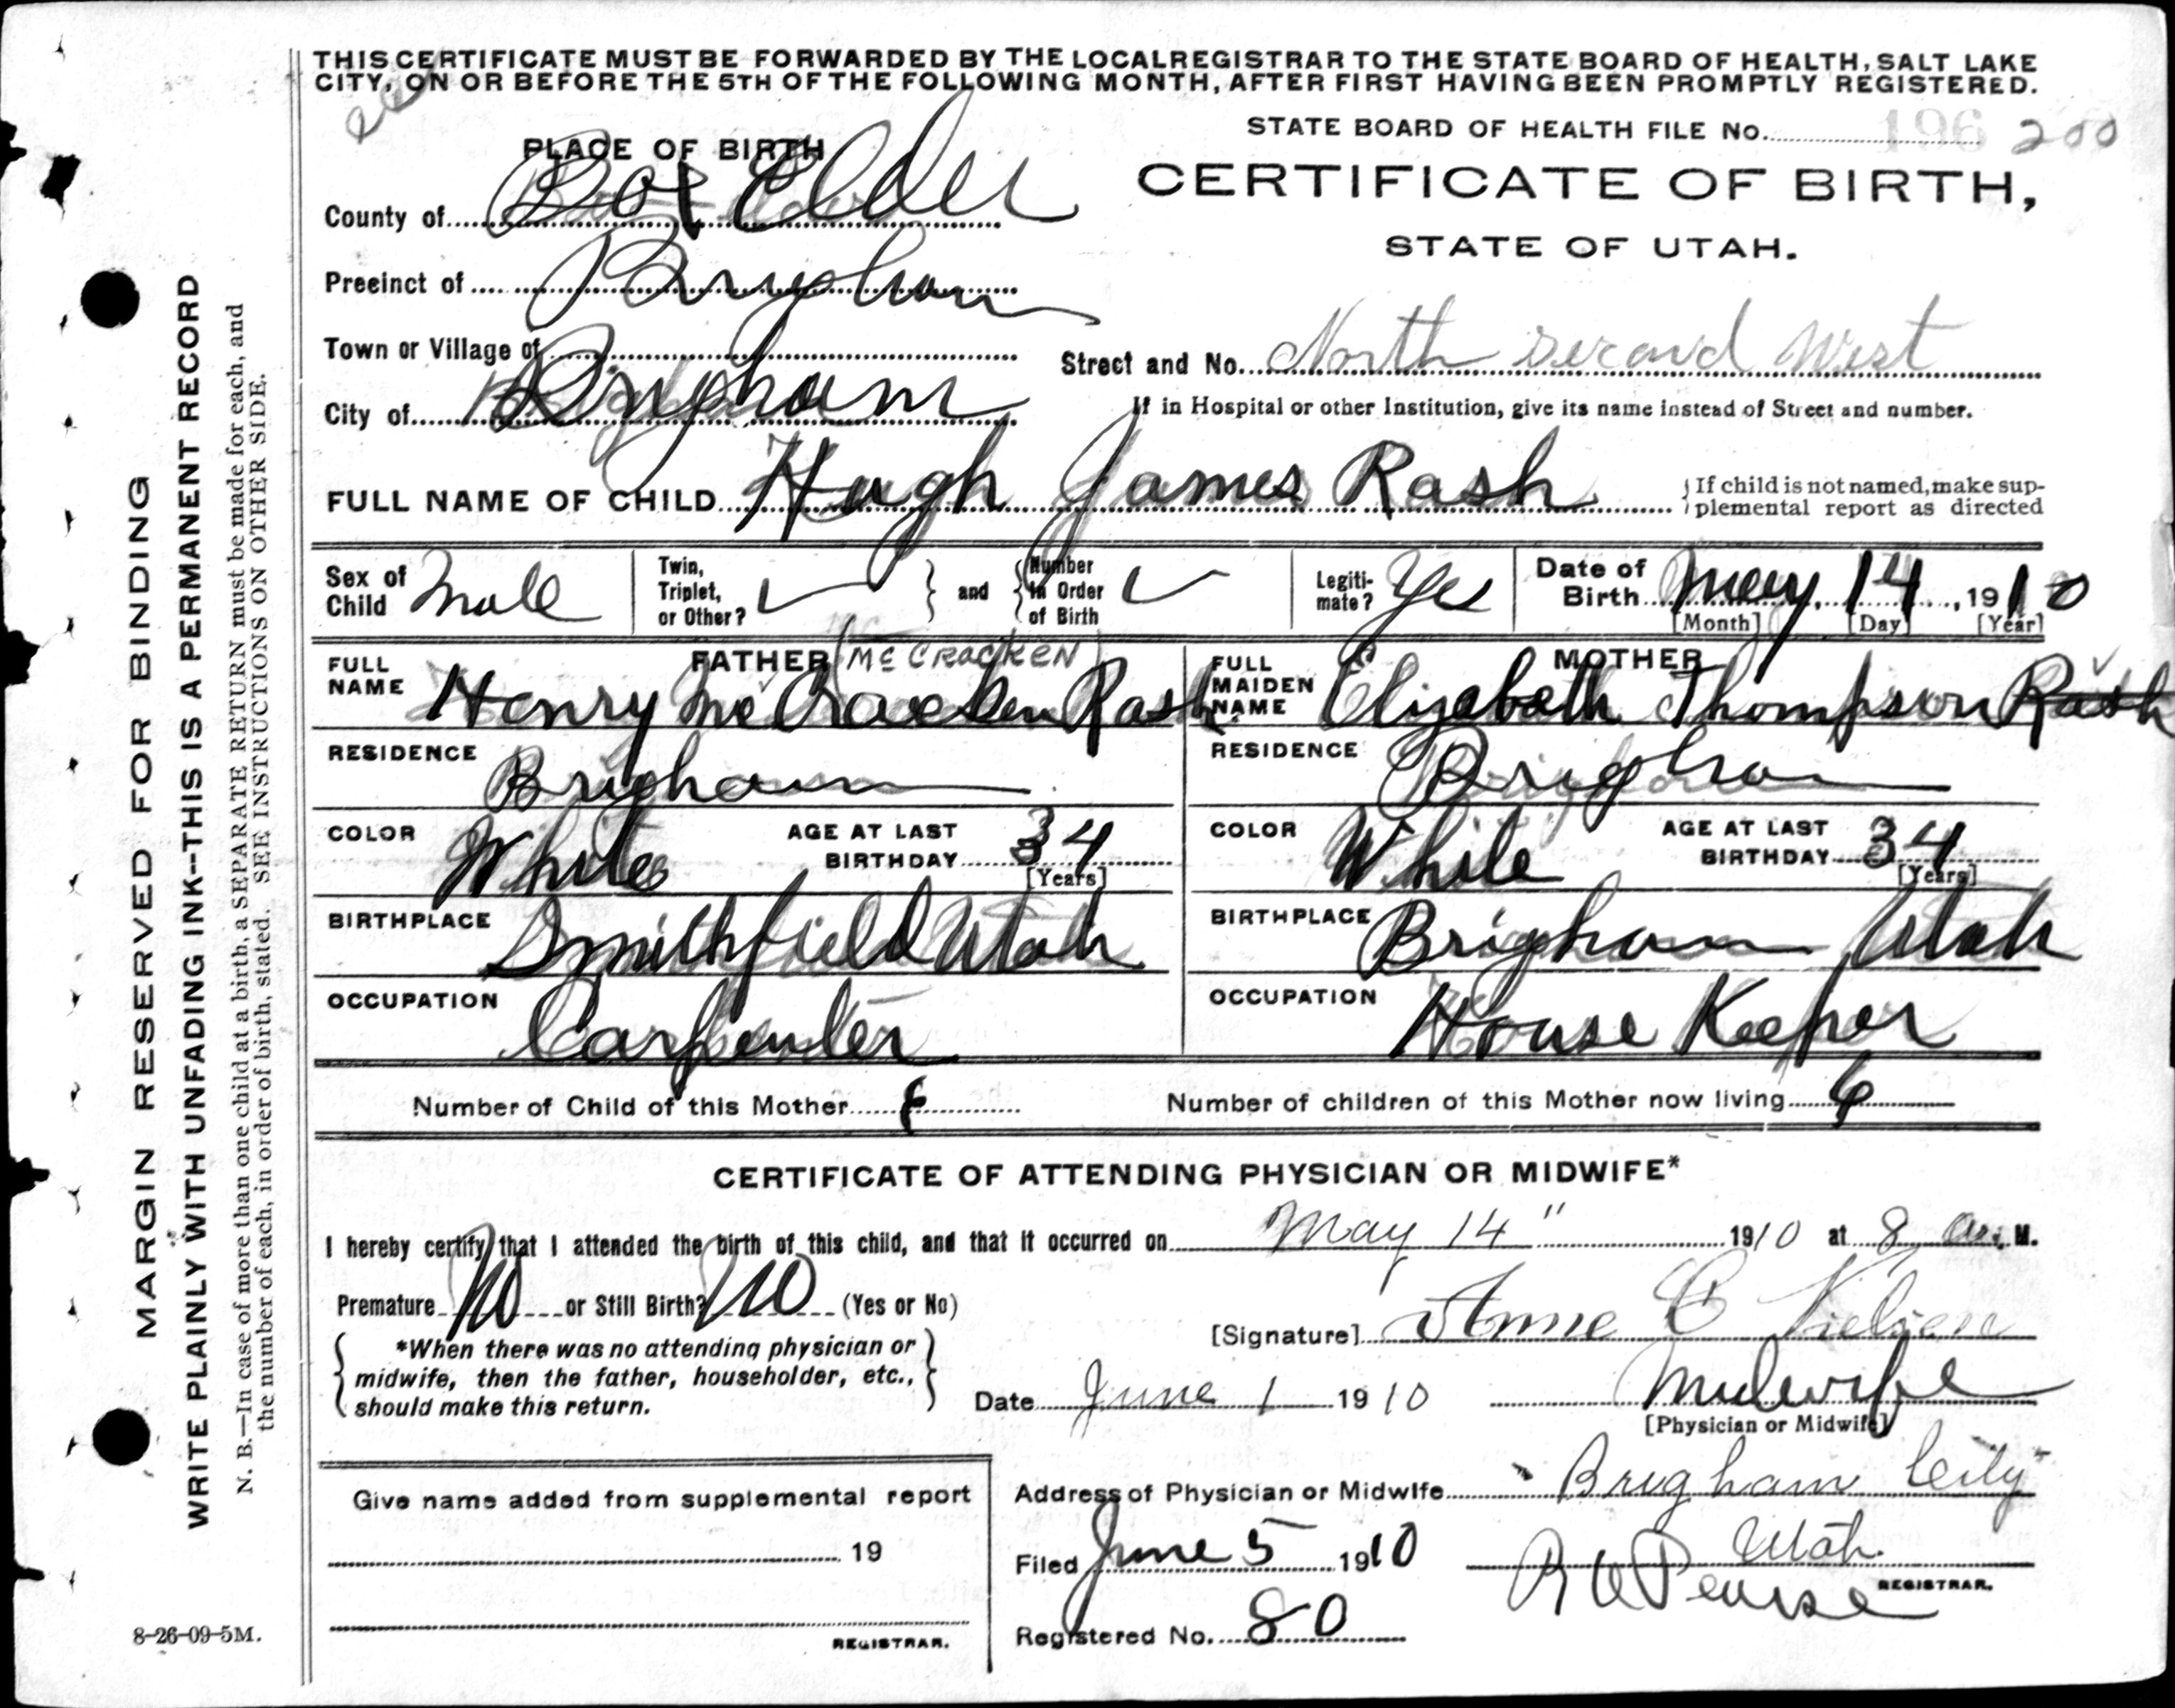 THIS CERTIFICATE MUST BE FORWARDED BY THE LOCAL REGISTRAR TO THE STATE BOARD OF HEALTH, SALT LAKE
CITY, ON OR BEFORE THE 5TH OF THE FOLLOWING MONTH, AFTER FIRST HAVING BEEN PROMPTLY REGISTERED.
STATE BOARD OF HEALTH FILE No. 196 200
PLACE OF BIRTH
CERTIFICATE OF BIRTH,
STATE OF UTAH.
County of Box Elder
Precinct of Brigham
Town or Village of
Street and No. North second West
City of Brigham
If in Hospital or other Institution, give its name instead of Street and number.
FULL NAME OF CHILD Hugh James Rash
If child is not named, make sup-
plemental report as directed
Sex of Child Male
Twin, Triplet, or Other?
and Number in Order of Birth
Legiti-mate? Yes
Date of Birth May 14, 1910
[Month] [Day] [Year]
FATHER (McCRACKEN)
FULL NAME Henry McCracken Rash
RESIDENCE Brigham
COLOR White AGE AT LAST BIRTHDAY 34
[Years]
BIRTHPLACE Smithfield Utah
OCCUPATION Carpenter
MOTHER
FULL MAIDEN NAME Elizabeth Thompson Rash
RESIDENCE Brigham
COLOR White AGE AT LAST BIRTHDAY 34
[Years]
BIRTHPLACE Brigham Utah
OCCUPATION House Keeper
Number of Child of this Mother
Number of children of this Mother now living
CERTIFICATE OF ATTENDING PHYSICIAN OR MIDWIFE*
I hereby certify that I attended the birth of this child, and that it occurred on May 14" 1910 at 8 a. M.
Premature No or Still Birth? No (Yes or No)
*When there was no attending physician or
midwife, then the father, householder, etc.,
should make this return.
[Signature] Anne C Nielsen
Date June 1 1910
Midwife
[Physician or Midwife]
Give name added from supplemental report
19
REGISTRAR.
Address of Physician or Midwife Brigham City
Utah.
Filed June 5 1910
Pearse
REGISTRAR.
Registered No. 80
MARGIN RESERVED FOR BINDING
WRITE PLAINLY WITH UNFADING INK--THIS IS A PERMANENT RECORD
N. B.—In case of more than one child at a birth, a SEPARATE RETURN must be made for each, and
the number of each, in order of birth, stated. SEE INSTRUCTIONS ON OTHER SIDE.
8-26-09-5M.